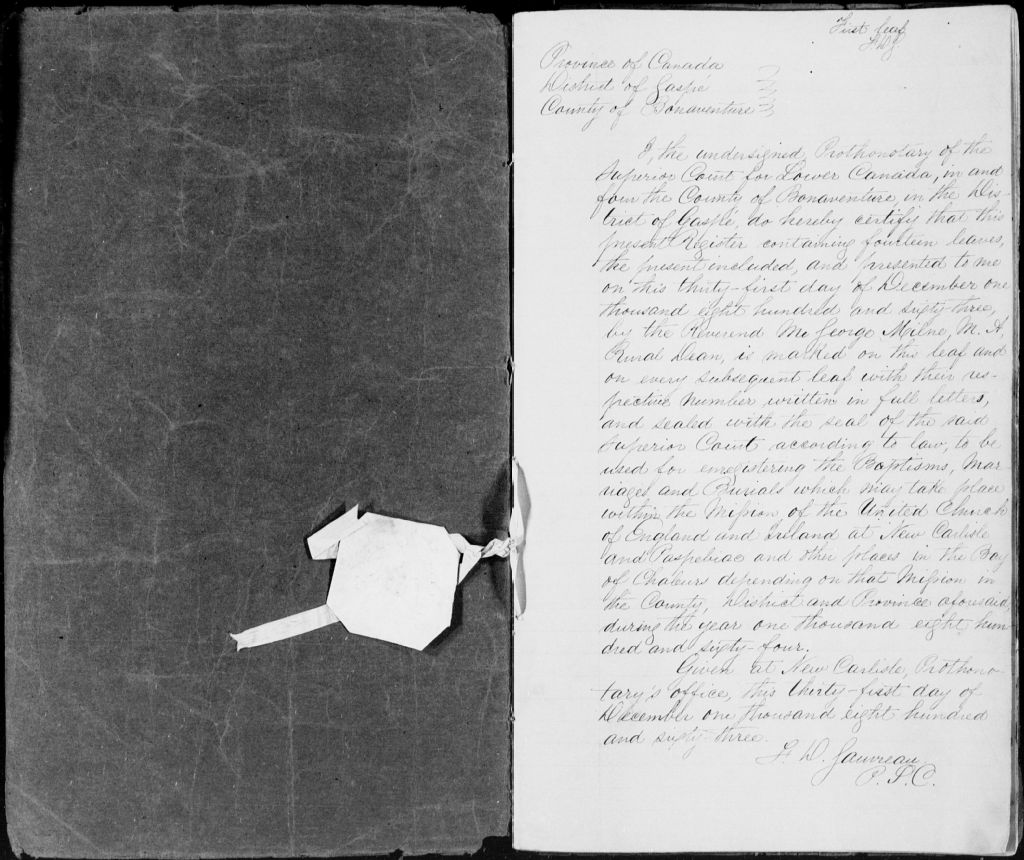 First leaf
Province of Canada
District of Gaspé
County of Bonaventure
I, the undersigned, Prothonotary of the
Superior Court for Lower Canada, in and
for the County of Bonaventure, in the Dis-
trict of Gaspé, do hereby certify that this
present Register containing fourteen leaves,
the present included, and presented to me
on this thirty-first day of December one
thousand eight hundred and sixty-three,
by the Reverend Mr George Milne, M. A,
Rural Dean, is marked on this leaf and
on every subsequent leaf with their res-
pective number written in full letters,
and sealed with the seal of the said
Superior Court according to law, to be
used for enregistering the Baptisms, Mar-
riages and Burials which may take place
within the Mission of the United Church
of England and Ireland at New Carlisle
and Paspebiac and other places in the Bay
of Chaleurs depending on that Mission in
the County, District and Province aforesaid,
during the year one thousand eight hun-
dred and sixty-four.
Given at New Carlisle, Prothono-
tary's office, this thirty-first day of
December one thousand eight hundred
and sixty-three.
F. D. Gauvreau
P. S. C.